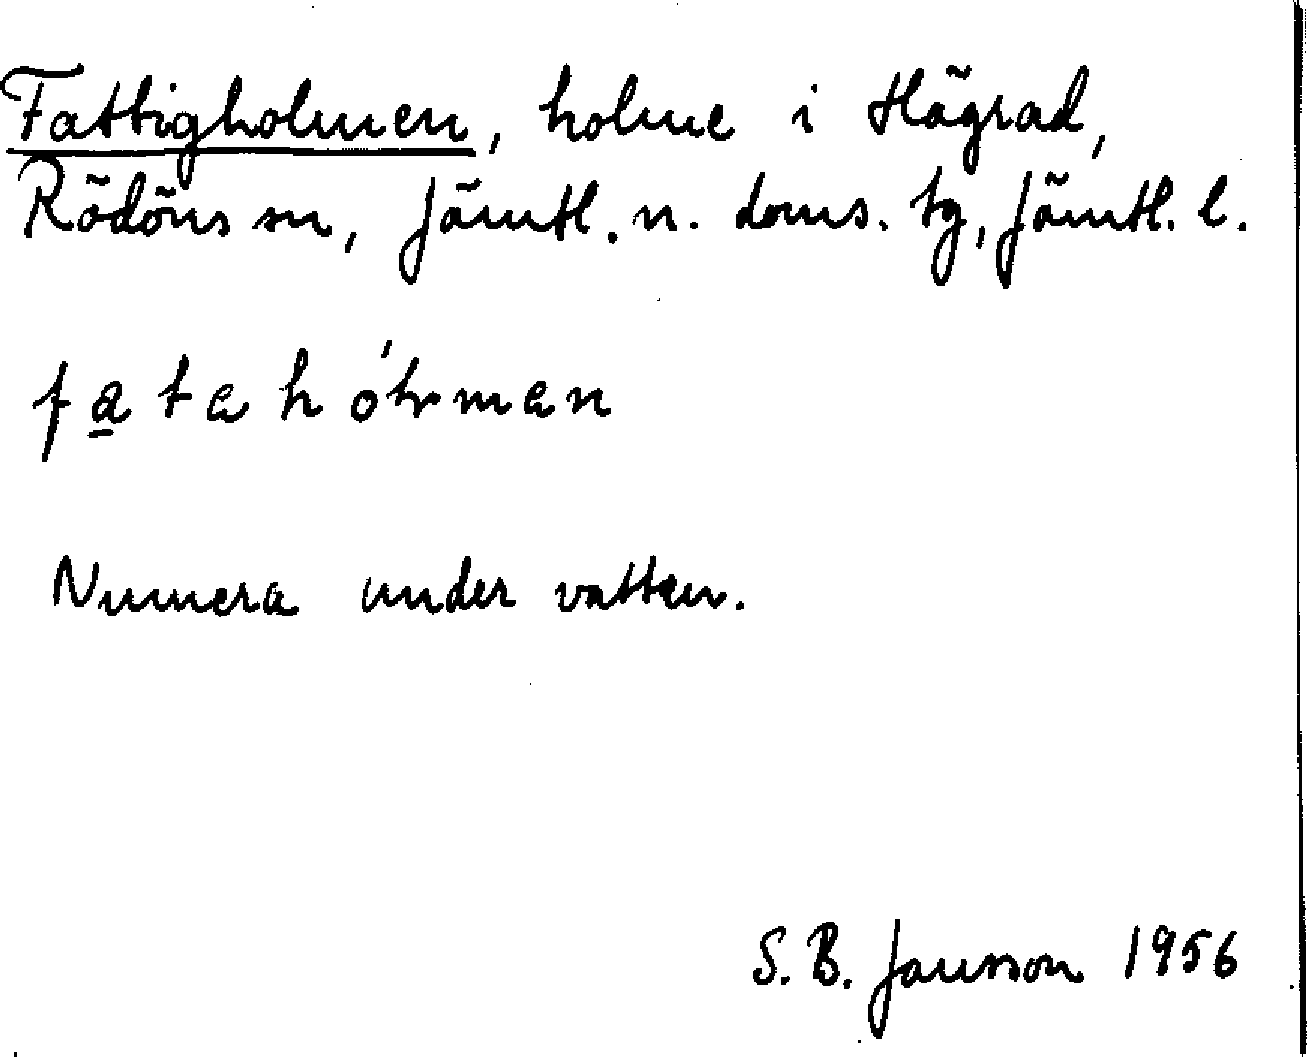 Fattigholmen, holme i Hägrad,
Rödöns sn, Jämtl. n. doms. tg, Jämtl. l.
fatahórman
Numera under vatten.
S. B. Jansson 1956